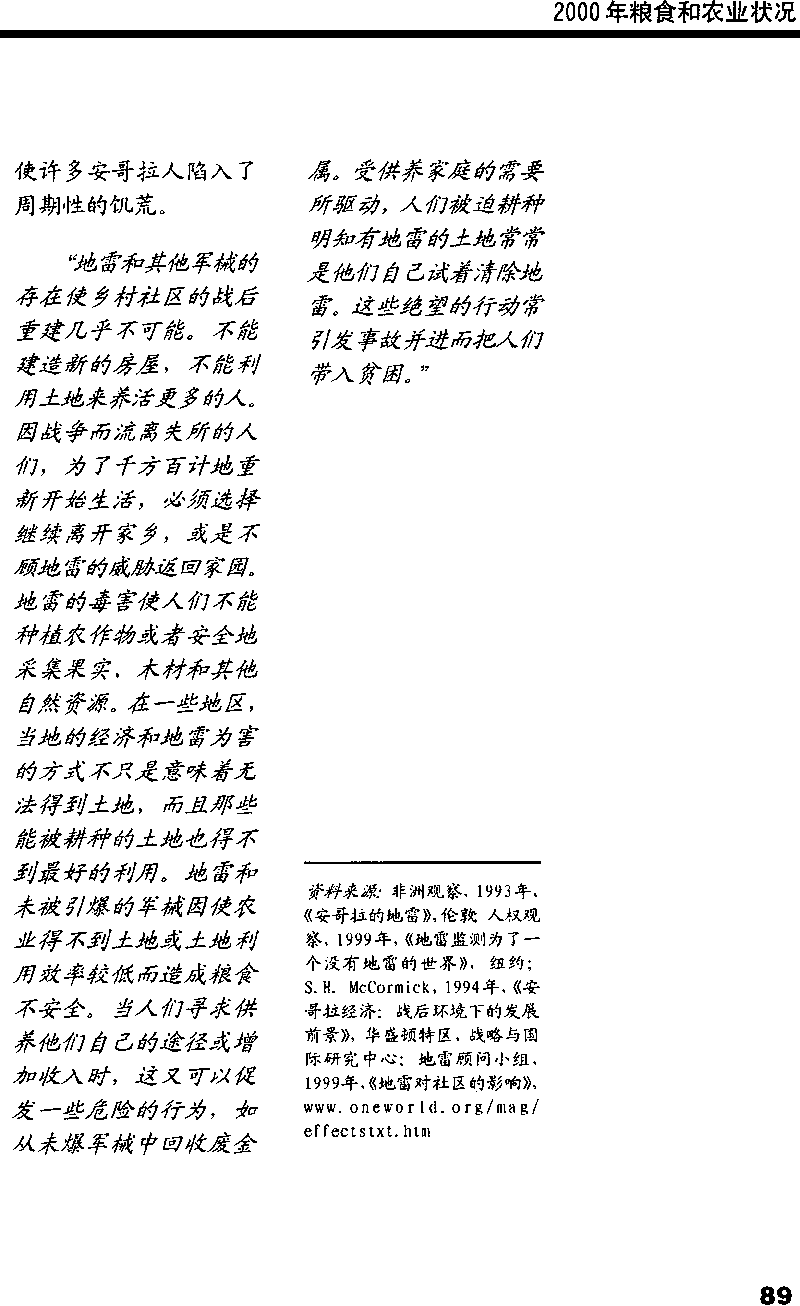 2000年粮食和农业状况
使许多安哥拉人陷入了
周期性的饥荒。
“地雷和其他军械的
存在使乡村社区的战后
重建几乎不可能。不能
建造新的房屋，不能利
用土地来养活更多的人。
因战争而流离失所的人
们，为了千方百计地重
新开始生活，必须选择
继续离开家乡，或是不
顾地雷的威胁返回家园。
地雷的毒害使人们不能
种植农作物或者安全地
采集果实、木材和其他
自然资源。在一些地区，
当地的经济和地雷为害
的方式不只是意味着无
法得到土地，而且那些
能被耕种的土地也得不
到最好的利用。地雷和
未被引爆的军械因使农
业得不到土地或土地利
用效率较低而造成粮食
不安全。当人们寻求供
养他们自己的途径或增
加收入时，这又可以促
发一些危险的行为，如
从未爆军械中回收废金
属。受供养家庭的需要
所驱动，人们被迫耕种
明知有地雷的土地常常
是他们自己试着清除地
雷。这些绝望的行动常
引发事故并进而把人们
带入贫困。”
资料来源: 非洲观察、1993年、
《安哥拉的地雷》，伦敦 人权观
察、1999年，《地雷监测为了一
个没有地雷的世界》，纽约；
S.H. McCormick, 1994年、《安
哥拉经济：战后环境下的发展
前景》，华盛顿特区，战略与国
际研究中心；地雷顾问小组、
1999年、《地雷对社区的影响》、
www.oneworld.org/mag/
effectstxt.htm
89